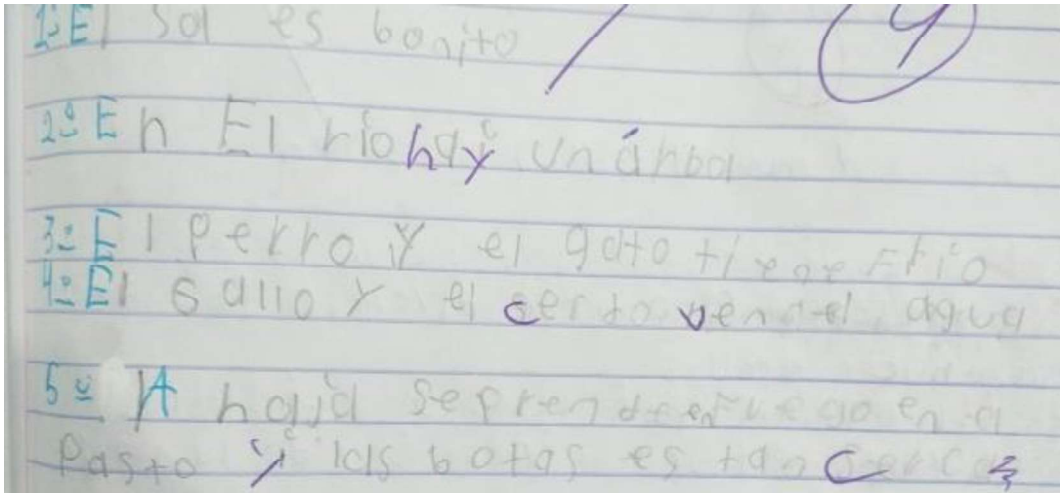 1º El sol es bonito 4
2º En El río hay un árbol
3º El Perro Y el gato tiene Frio
4º El Gallo Y el cerdo ven el agua
5º A hajd se prende en fuego en el
Pasto y las botas es tan cercas